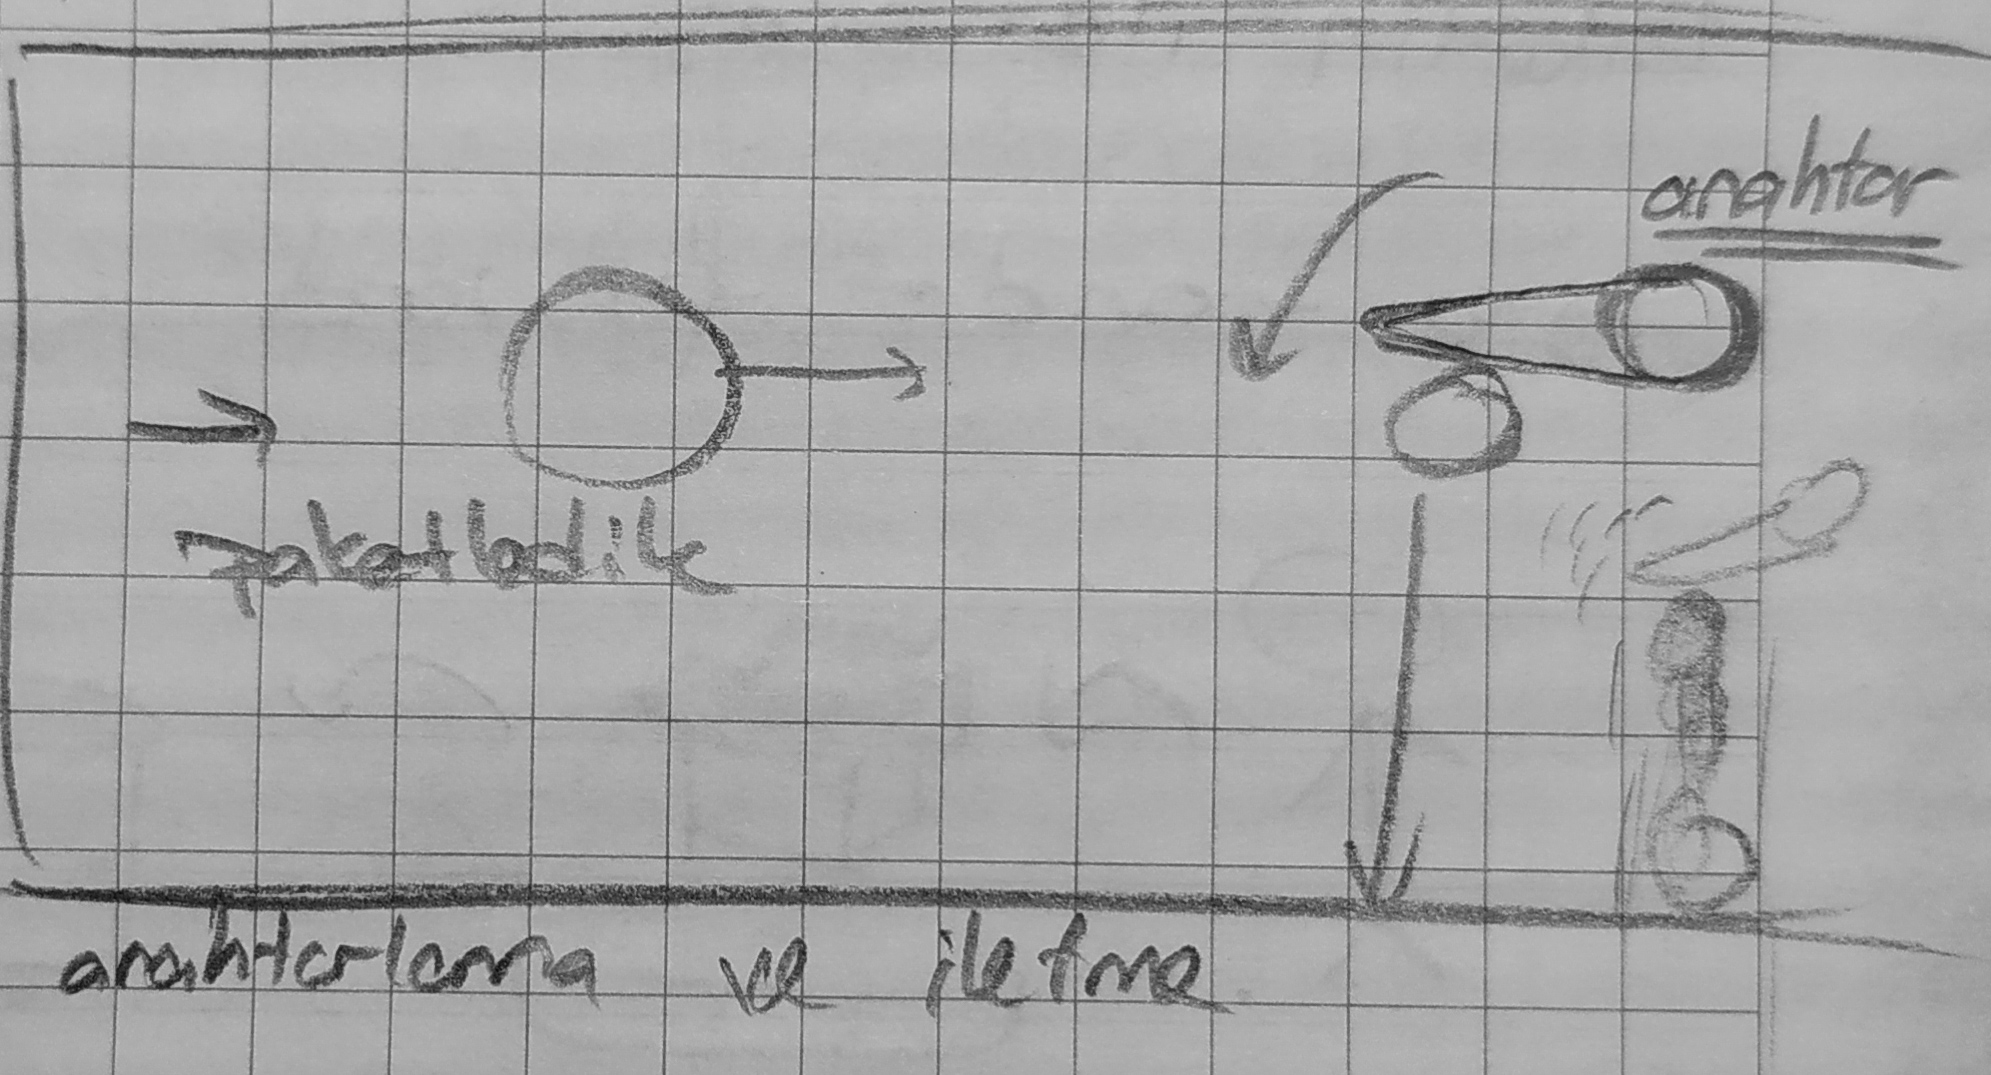 anahtar
paketledik
anahtarlama ve iletme